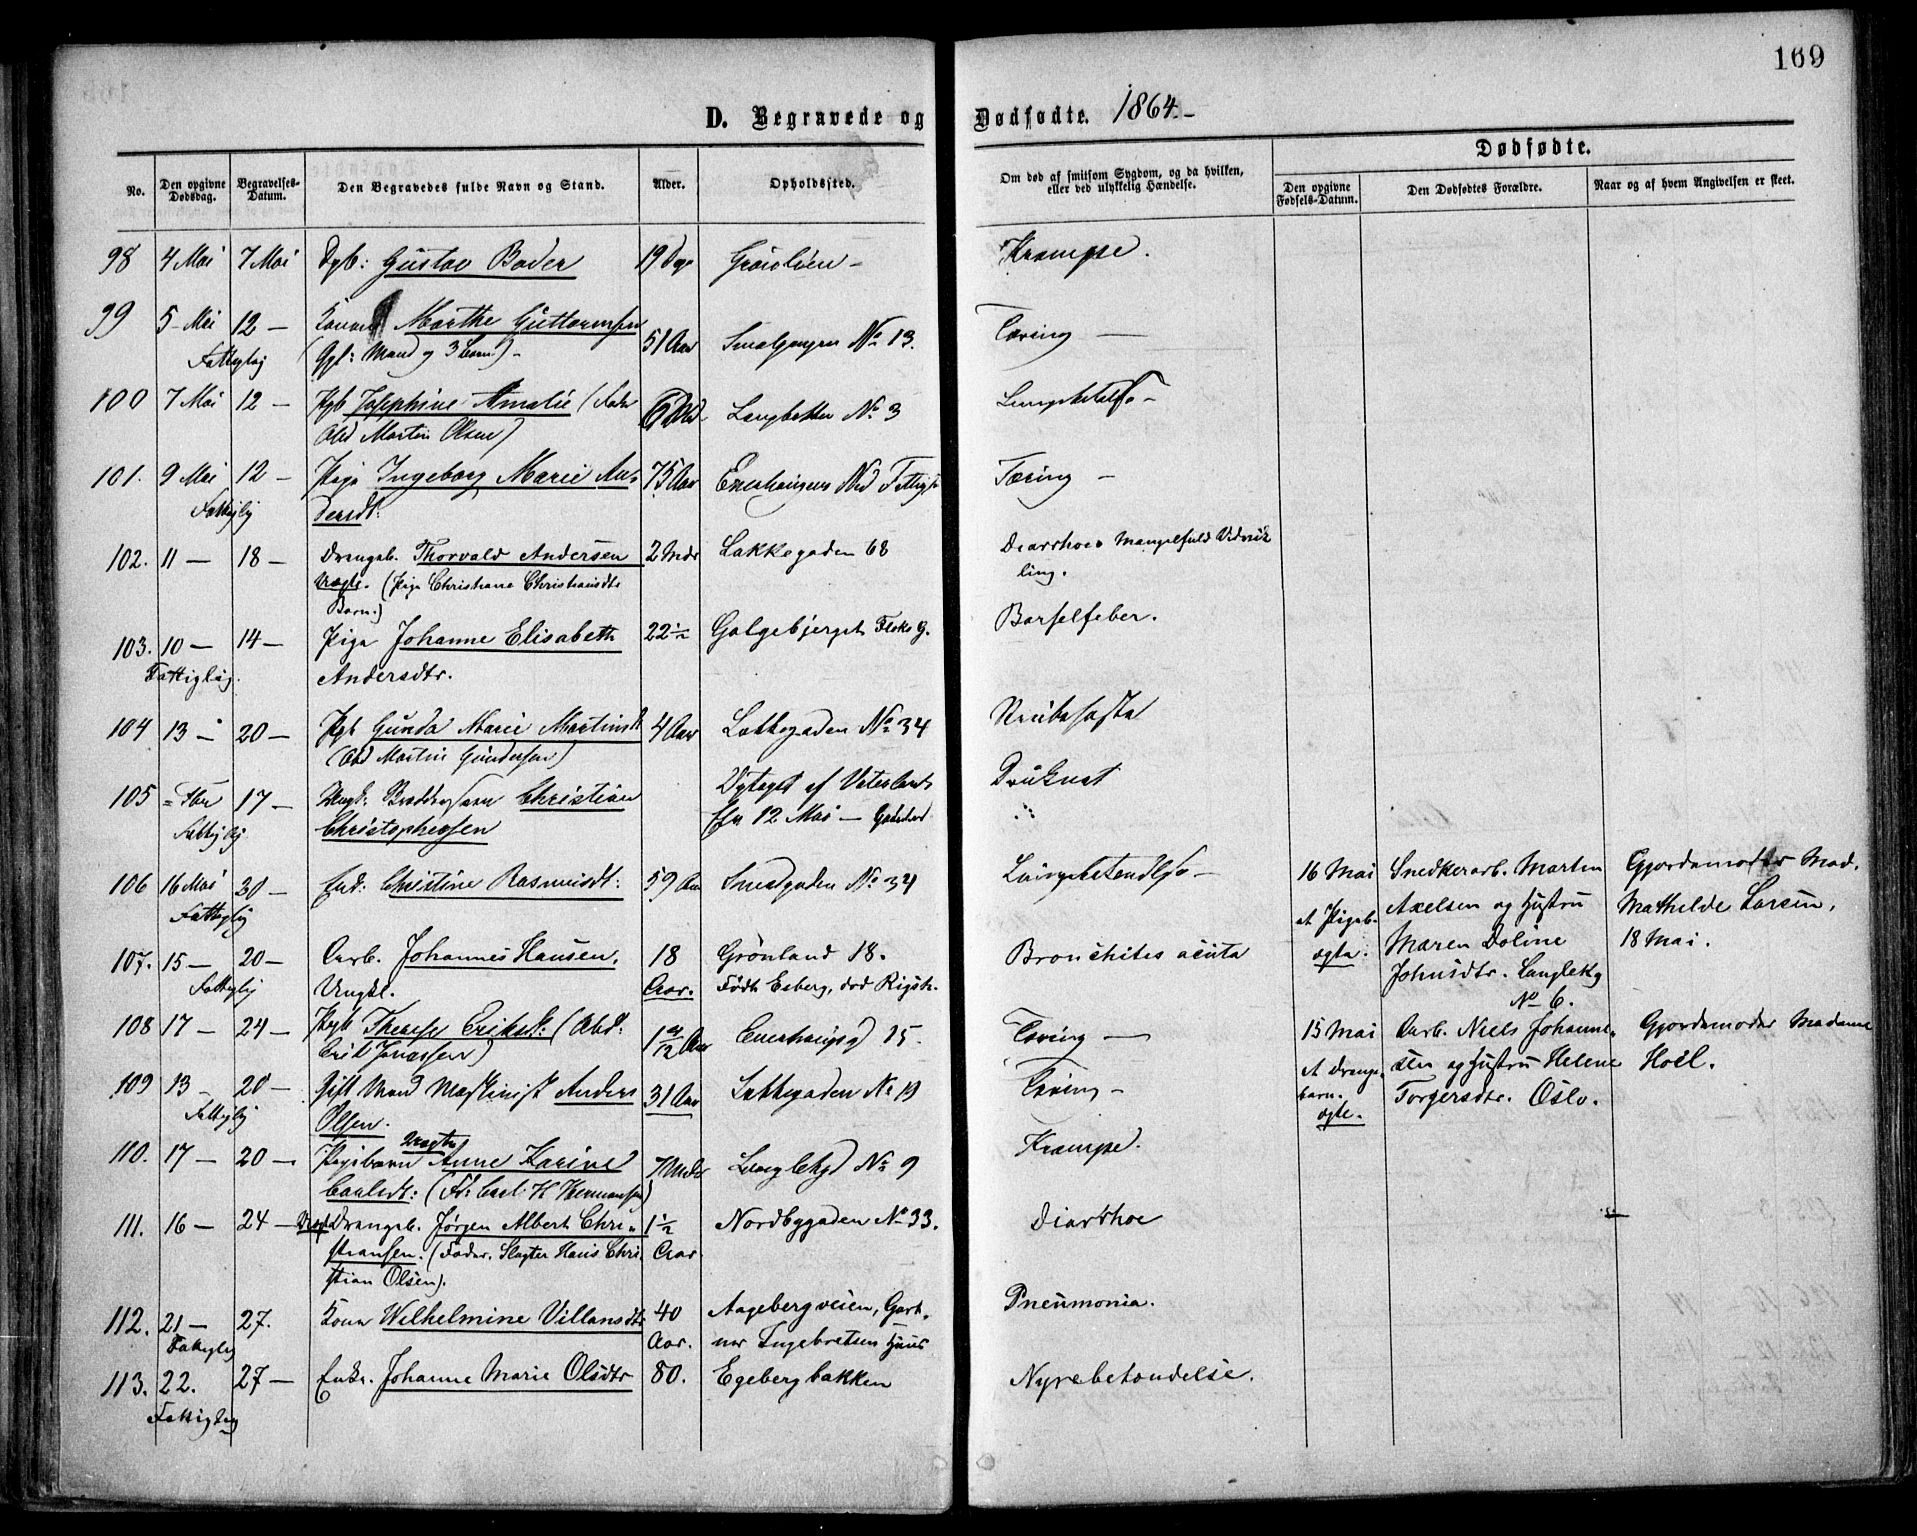 169
D. Begravede og Dødfødte. 1864.-
Dødfødte.
No.
Den opgivne Dødsdag.
Begravelses-Datum.
Den Begravedes fulde Navn og Stand.
Alder.
Opholdssted.
Om død af smitsom Sygdom, og da hvilken, eller ved ulykkelig Hændelse.
Den opgivne Fødsels-Datum.
Den Dødfødtes Forældre.
Naar og af hvem Angivelsen er skeet.
98 4 Mai 7 Mai Dgb: Gustav Bader 19 Dge Grønlien - Krampe.
99 5 Mai 12 - Kone Marthe Guttormsen 51 Aar Smalgangen No 13. Tæring -
Fattiglig (Gjl: Mand og 3 Børn) -
100 7 Mai 12 - Pgb Josephine Amalie (Fader Langbakken No 3
Abd Martin Olsen)
101. 9 Mai 12 - Pige Ingeborg Marie An- 75 Aar Enerhaugens Tæring -
Fattiglig dersdt:
102. 11 - 18 - Drengeb. Thorvald Andersen 2 Mdr Lakkegaden 68 Diarrhoe Mangelfuld Udvik
uægte. (Pige Christiane Christiansdtr ling.
Barn.)
103. 10 - 14 - Pige Johanne Elisabeth 22 1/2 Galgebjerget Barselfeber.
Fattiglig. Andersdtr.
104 13 - 20 - Pgb Gunda Marie Martinsdt 4 Aar Lakkegaden No 34 Strubehoste
(Abd Martin Gundersen)
105 17 - Ungk: Christian Optaget af Vaterlands Druknet
Fattiglig Christophersen 12 Mai -
106 16 Mai 20 - Enk: Christine Rasmusdt: 59 Aar Smedgaden No 34 16 Mai Snedkerarb. Morten Gjordemoder Mad.
Fattiglig et Pigeb. Axelsen og Hustru Mathilde Larsen,
107. 15 - 20 - Aarb. Johannes Hansen, 18 Grönland 18. Bronchites acuta ægte. Maren Doline 18 Mai.
Fattiglig Ungkl. Aar. Född Esberg, død Rigsh. Johnsdtr. Langlekg
No 6.
108 17 - 24 - Pgb Therese Eriksdt: (Abd: Enerhaugsg 15. Tæring - 15 Mai Aarb. Niels Johanne- Gjordemoder Madame
Erik Jonassen) et Drenge- sen og Hustru Helene Hoel.
109 13 - 20 - Gift Mand Maskinist Anders 31 Aar Lakkegaden No 19 Tæring - barn. Torgersdtr. Oslo.
Fattiglig Olsen. ægte.
110. 17 - 20 - Pigebarn uægte Anne Karine 7 Mdr Langlekgd No 9 Krampe.
Carlsdt: (Fd: Carl H Hermansen)
111. 16 - 24 - Drengeb. Jørgen Albert Chri- 1 1/2 Nordbygaden No 33. Diarrhoe
stiansen. (Fader. Slagter Hans Chri- Aar.
stian Olsen).
112. 21 - 27. Kone Wilhelmine Villansdtr 40 Aagebergveien, Gart- Pneumonia.
Fattiglig Aar. ner Ingebretsen Huus
113. 22. 27 - Enke. Johanne Marie Olsdtr 80. Egebergbakken Nyrebetændelse.
Fattiglig